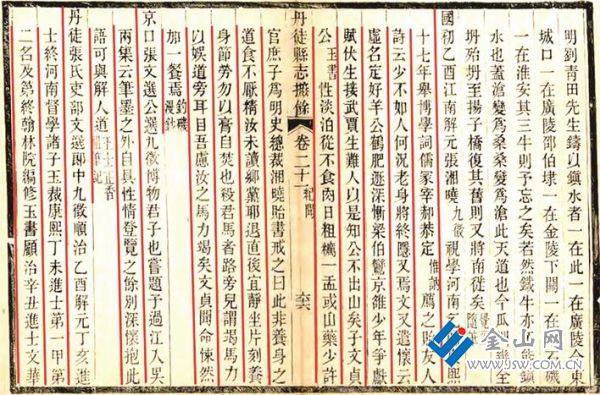 明到靑田先生鑄以鎮水者一在此一在廣陵合東
城口一在廣陵邵伯埭一在金陵下關一在磯
一在淮安其三牛則予忘之矣若然鐵牛亦能鎮
水也蓋滄變爲桑桑變爲滄此天道也今瓜全
坍殆坍至揚子橋復其舊則又將南徙矣
國初乙酉江南解元張湘曉九徵視學河南文熙
十七年舉博學詞儒冢宰郝恭定惟訥薦之友人
詩云少不如人何況老身將終隱又焉文又遺懷云
虛名定好羊公鶴肥遯深慚梁伯鸞京雒少年爭獻
賦伏生接武賈生難人以是知公不出山矣子文貞
公玉書性淡泊從不食肉日粗一盂或山藥少許
丹徒縣志摭餘 卷二十一 紀聞
官庶子爲明史總裁湘曉貽書戒之曰此非養身之
道食不厭精汝未讀鄉黨耶退直後宜靜坐片刻養
身節勞勿以膏自焚也殺君馬者路旁兒謂竭馬力
以娛道旁耳目吾慮汝之馬力竭矣文貞聞命悚然
加一餐焉釣磯漫鈔
京口張文選公選九徵博物君子也嘗題予過江人吳
兩集云筆墨之外自具性情登覽之餘別深懷抱此
語可與解人道王士正香祖筆記
丹徒張氏吏部文選郎中九徵順治乙酉解元丁亥進
士終河南督學諸子玉裁康熙丁未進士第一甲第
二名及第終翰林院編修玉書顧治辛丑進士文華
金山网
www.jsw.com.cn